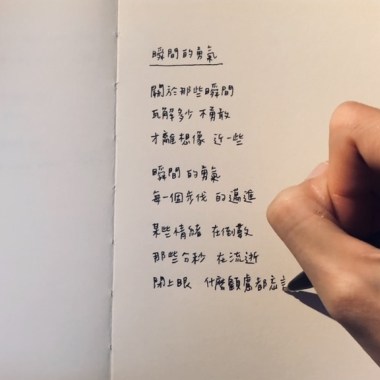 瞬間的勇氣
關於那些瞬間
瓦解多少 不勇敢
才離想像 近一些
瞬間 的勇氣
每一個步伐 的邁進
某些情緒 在倒數
那些分秒 在流逝
閉上眼 什麼顧慮都忘